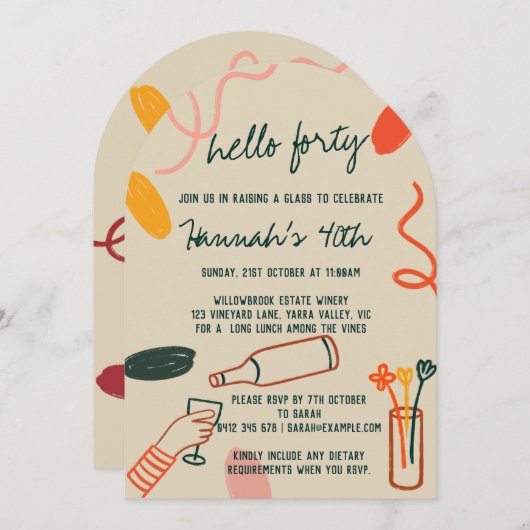 hello forty
JOIN US IN RAISING A GLASS TO CELEBRATE
Hannah's 40th
SUNDAY, 21ST OCTOBER AT 11:00AM
WILLOWBROOK ESTATE WINERY
123 VINEYARD LANE, YARRA VALLEY, VIC
FOR A LONG LUNCH AMONG THE VINES
PLEASE RSVP BY 7TH OCTOBER
TO SARAH
0412 345 678 | SARAH@EXAMPLE.COM
KINDLY INCLUDE ANY DIETARY
REQUIREMENTS WHEN YOU RSVP.